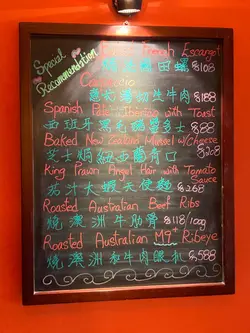 Special
Recommendation
French Escargot
田螺 $108
Carpaccio
薄切生牛肉 $188
Spanish Pata Iberico with Toast
西班牙黑毛豬多士 $88
Baked New Zealand Mussel w/ Cheese
芝士焗紐西蘭青口 $208
King Prawn Angel Hair with Tomato
Sauce
茄汁大蝦天使麵 $268
Roasted Australian Beef Ribs
燒澳洲牛肋骨 $118/100g
Roasted Australian M9+ Ribeye
燒澳洲和牛肉眼扒 $588